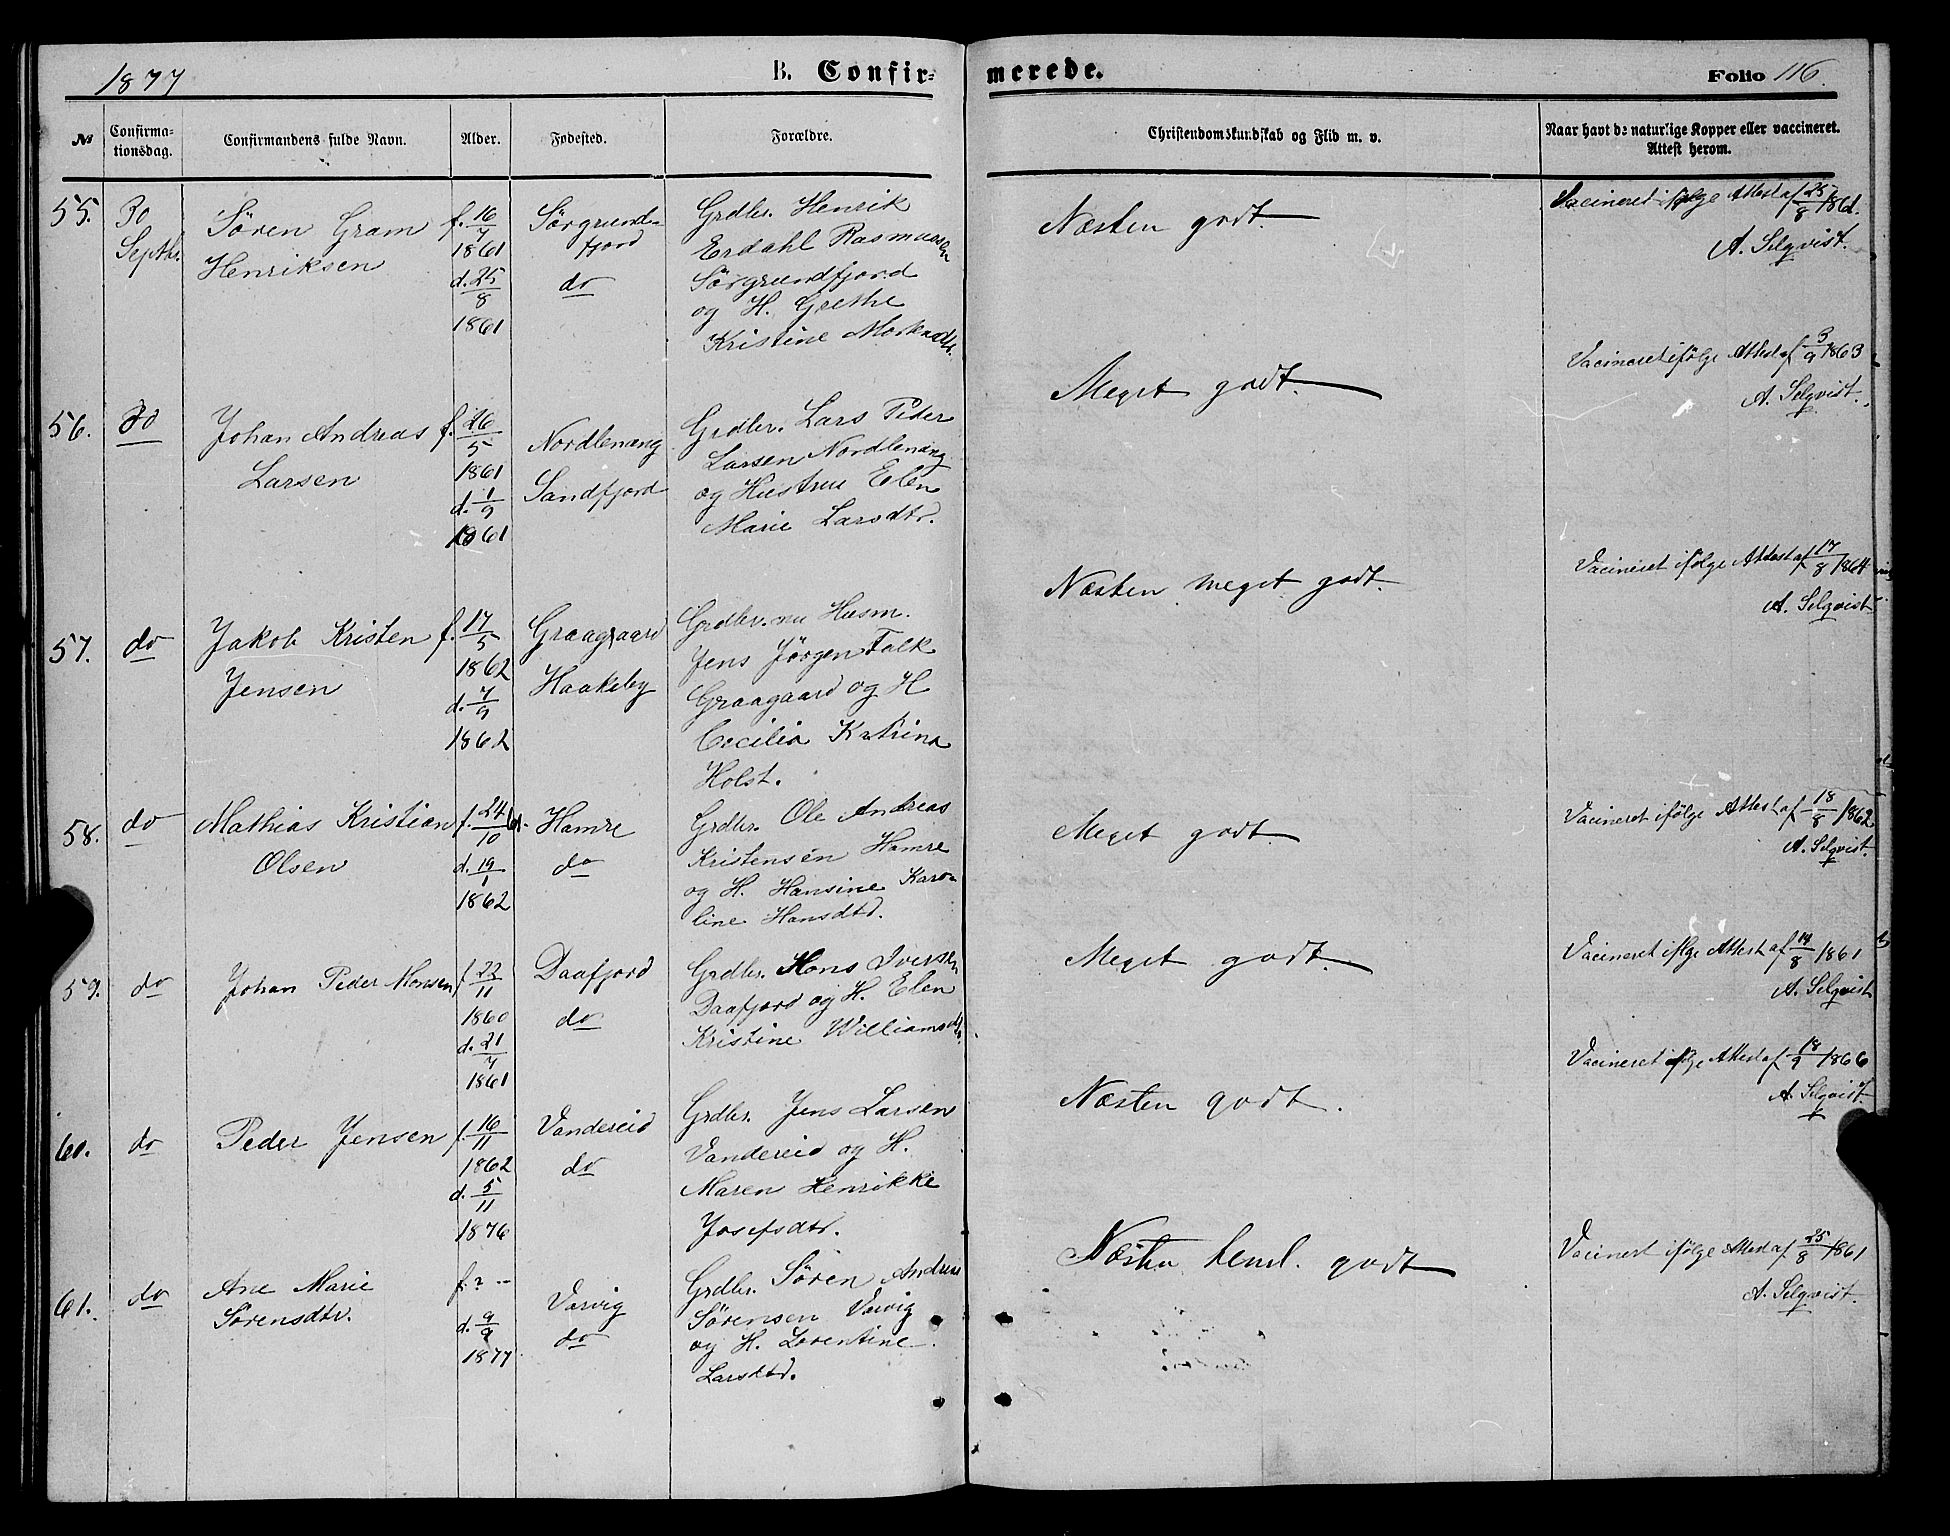 1877
B. Confir-
merede.
Folio 116.
No
Confirma-
tionsdag.
Confirmandens fulde Navn.
Alder.
Fødested.
Forældre.
Christendomskundskab og Flid m. v.
Naar havt de naturlige Kopper eller vaccineret.
Attest herom.
55.
30
Septbr.
Sören Gram
Henriksen
f. 16/7
1861
d. 25/8
1861
Sörgrund-
fjord
do
Grdbr. Henrik
Erdahl Rasmussen
Sörgrundfjord
og H. Grethe
Kristine
Næsten godt.
Vacineret ifölge Attest af 25/8 1861.
A. Selqvist.
56.
do
Johan Andreas
Larsen
f. 26/5
1861
d. 1/9
1861
Nordlenang
Sandfjord
Grdbr. Lars Peder
Larsen Nordlenang
og Hustru Elen
Marie Larsdtr.
Meget godt.
Vacineret ifölge Attest af 3/9 1863
A. Selqvist.
57.
do
Jakob Kristen
Jensen
f. 17/5
1862
d. 7/9
1862
Graagaard
Haakeby
Grdbr. nu Husm.
Jens Jörgen Falk
Graagaard og H
Cecilia Katrina
Holst.
Næsten meget godt.
Vacineret ifölge Attest af 17/8 1864
A. Selqvist.
58.
do
Mathias Kristian
Olsen
f. 24/10 61.
d. 19/1
1862
Hamre
do
Grdbr. Ole Andreas
Kristensen Hamre
og H. Hansine Karo-
line Hansdtd.
Meget godt.
Vacineret ifölge Attest af 18/8 1862
A. Selqvist.
59.
do
Johan Peder Monsen
f. 22/11
1860
d. 21/7
1861
Daafjord
do
Grdbr. Mons Iversen
Daafjord og H. Elen
Kristine Williamsdtr.
Meget godt.
Vacineret iflge Attest af 19/8 1861
A. Selqvist
60.
do
Peder Jensen
f. 16/11
1862
d. 5/11
1876
Vandereid
do
Grdbr. Jens Larsen
Vandereid og H.
Maren Henrikke
Josefsdtr.
Næsten godt.
Vacineret iflge Attest af 18/9 1866
A. Selqvist.
61.
do
Ane Marie
Sörensdtr.
f. ? --
d. 9/9
1877
Vasvig
do
Grdbr. Sören Andreas
Sörensen Vasvig
og H. Lorentine
Larsdtd.
Næsten temel. godt
Vacinert ifölge Attest af 25/8 1861
A. Selqvist.